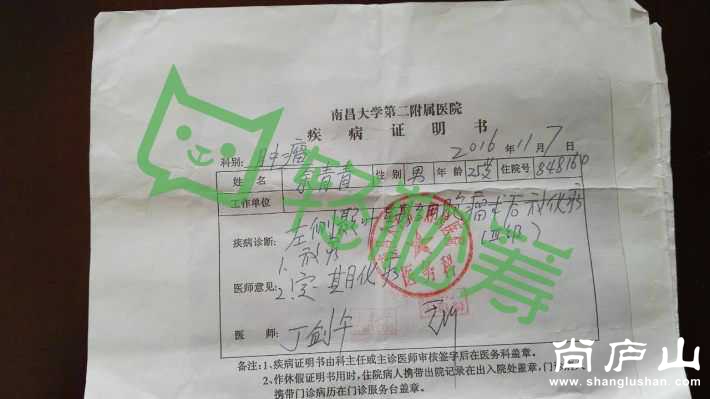 南昌大学第二附属医院
疾病证明书
2016年11月7日
科别: 肿瘤
姓名 性别 男 年龄 25岁 住院号 848160
工作单位
疾病诊断: 左侧颞叶 瘤术后 化疗
轻松筹
医师意见: 2.定期化疗
医务科
医师: 丁剑午
备注:1、疾病证明书由科主任或主诊医师审核签字后在医务科盖章。
2、作休假证明书用时,住院病人携带出院记录在出入院处盖章,门诊病人
携带门诊病历在门诊服务台盖章。
尚庐山
www.shanglushan.com